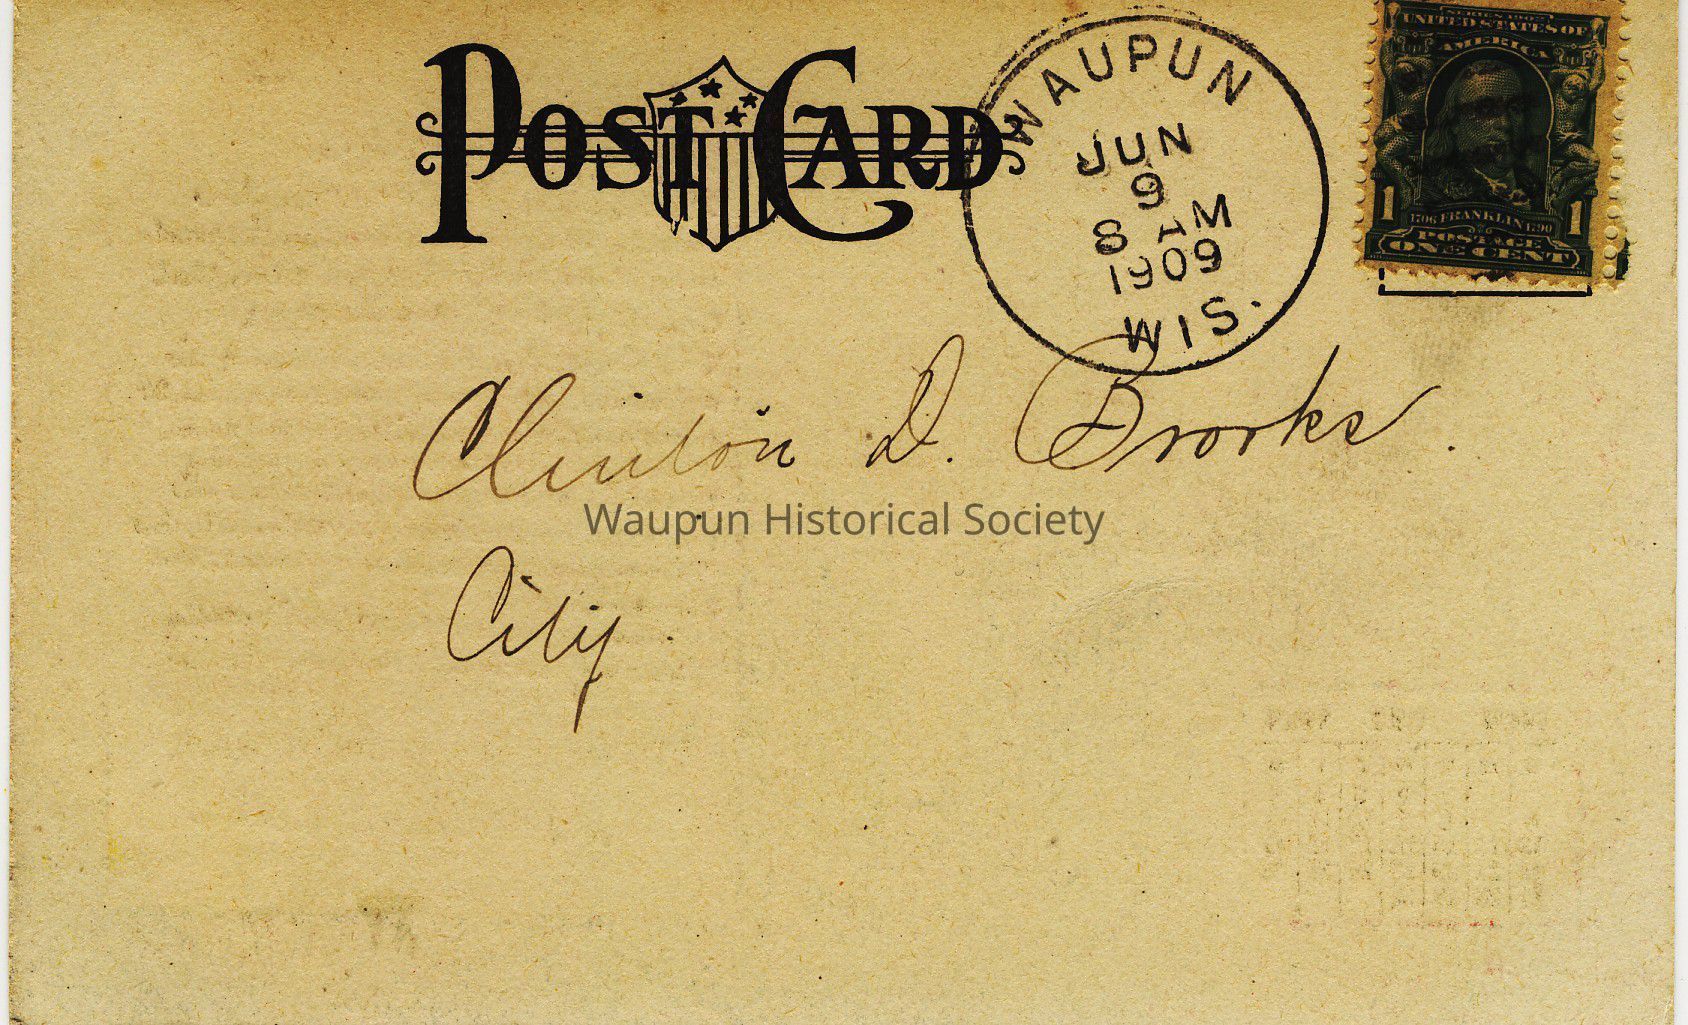 POST CARD
WAUPUN
JUN
9
8 AM
1909
WIS.
SERIES 1902
UNITED STATES OF
AMERICA
1 1
1706 FRANKLIN 1790
POSTAGE
ONE CENT
Clinton D. Brooks.
Waupun Historical Society
City.